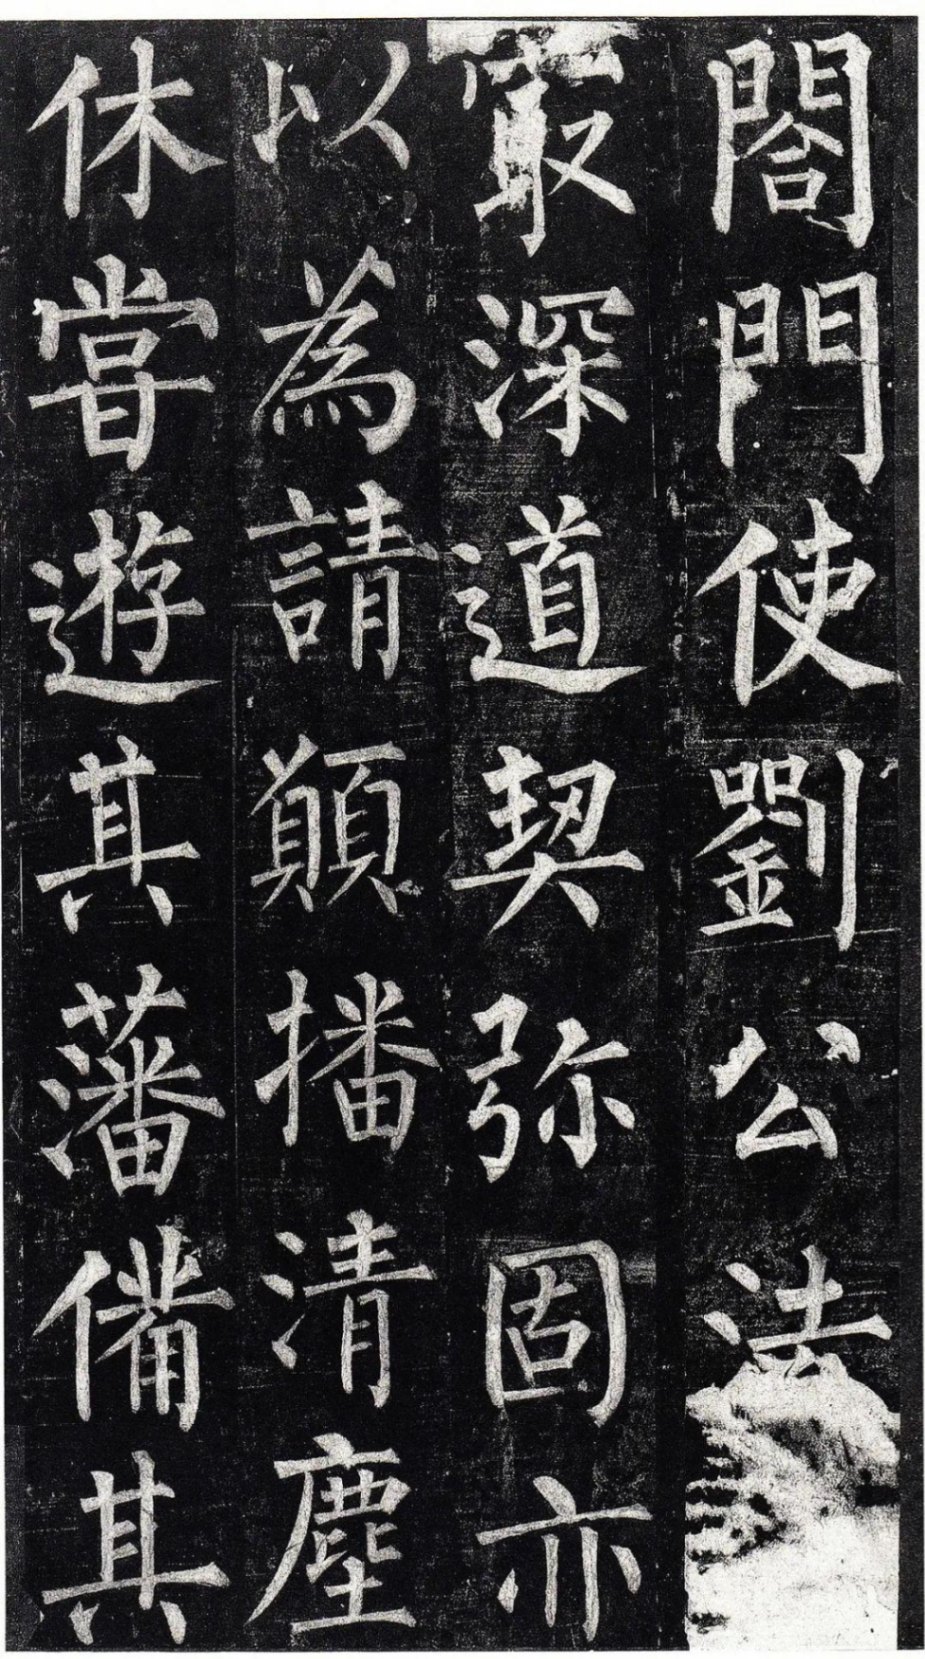 閤門使劉公法
㝡深道契弥固亦
以為請願播清塵
休甞遊其藩備其